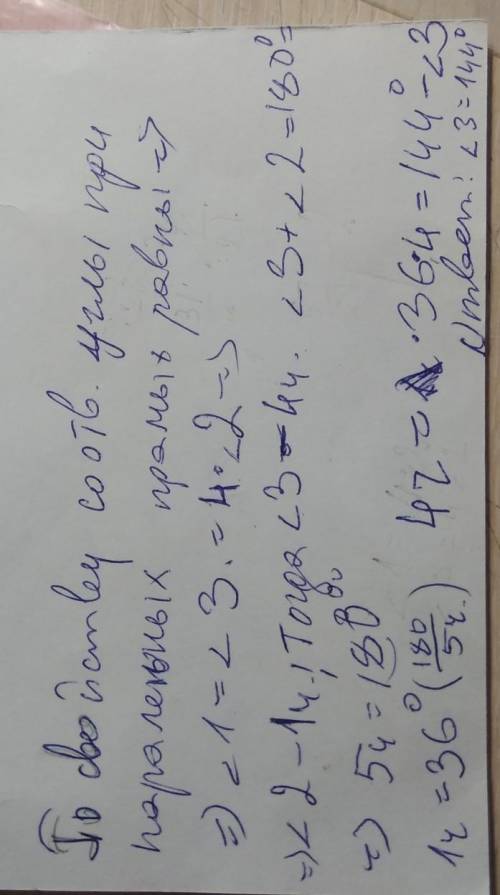 По свойству соотв. углы при
паралельных прямых равны =>
=> <1 = <3. = 4.<2 =>
=> <2 - 1ч.; Тогда <3 - 4ч. <3 + <2 = 180° =
=> 5ч = 180
1ч = 36° (180/5ч.) 4ч = 36.4 = 144° - <3
Ответ: <3 = 144°